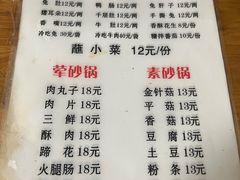 兔肚12元/两 鸭肠12元/两 兔肝子12元/两
猪耳朵12元/两 牛腱肚12元/两 手撕兔12元/两
香嘴12元/两 牛肚12元/两 香酥花生8元/份
冷吃兔30元/份 冷吃牛肉40元/份 糖拌番茄10元/份
蘸小菜 12元/份
荤砂锅 素砂锅
肉丸子18元 金针菇13元
肉片18元 平菇13元
三鲜18元 香菇13元
酥肉18元 豆腐13元
蹄花18元 土豆13元
火腿肠18元 粉条13元